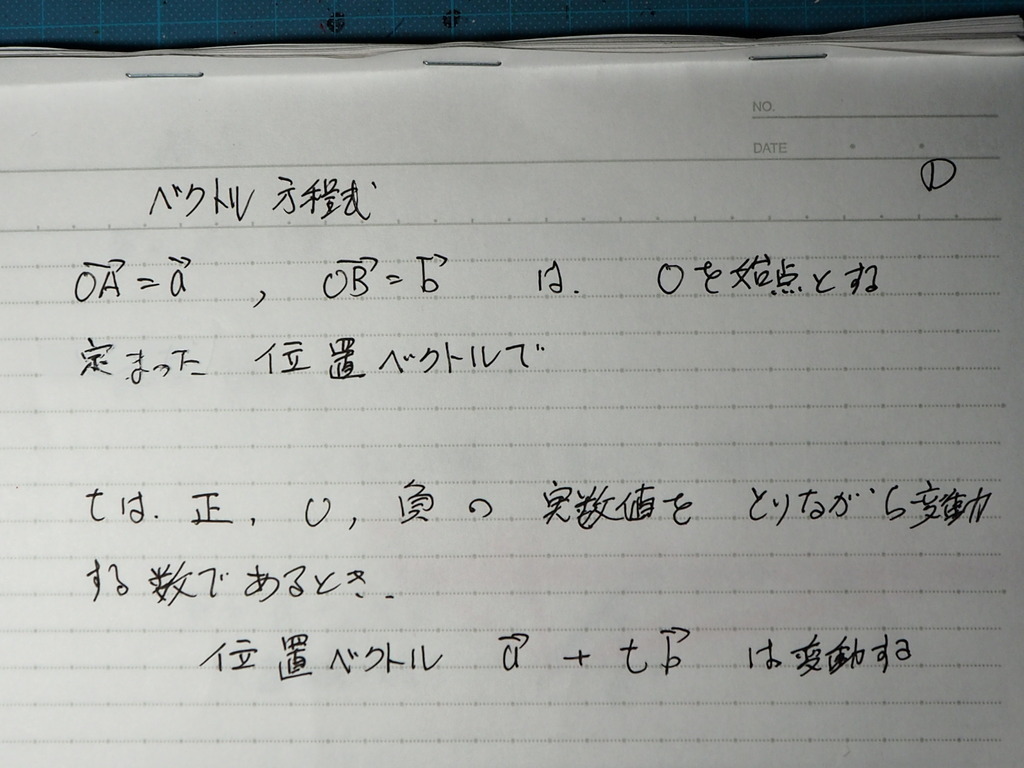 NO.
DATE
①
ベクトル 方程式
$\overrightarrow{OA} = \vec{a}$ , $\overrightarrow{OB} = \vec{b}$ は. Oを始点とする
定まった 位置ベクトルで
tは. 正, 0, 負の 実数値を とりながら変動
する数であるとき.
位置ベクトル $\vec{a} + t\vec{b}$ は変動する